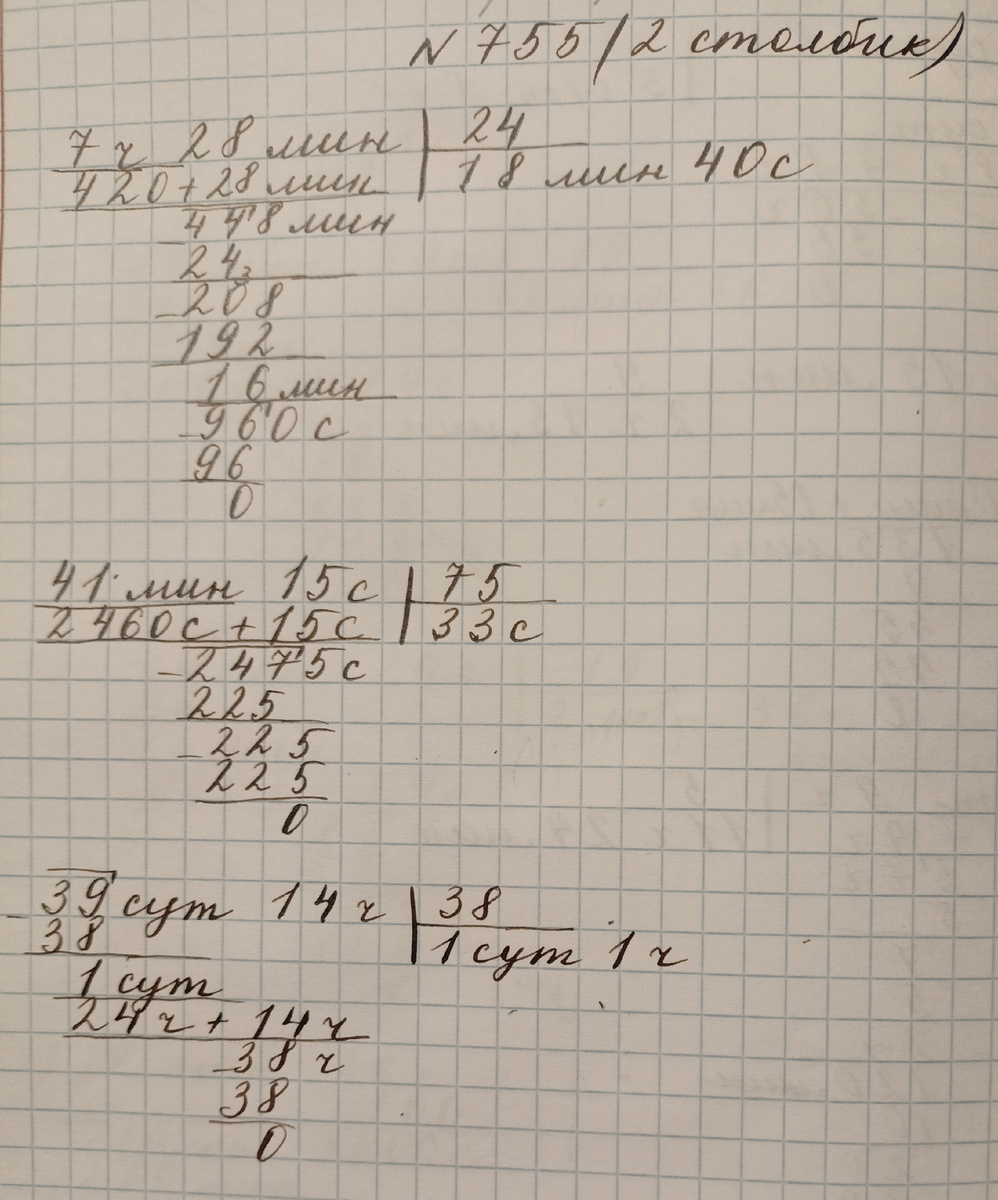 N 755 (2 столбик)
7 ч 28 мин | 24
420 + 28 мин | 18 мин 40 с
- 448 мин
24
- 208
192
16 мин
- 960 с
96
0
41 мин 15 с | 75
2460 с + 15 с | 33 с
- 2475 с
225
- 225
225
0
- 39 сут 14 ч | 38
38 | 1 сут 1 ч
1 сут
24 ч + 14 ч
- 38 ч
38
0